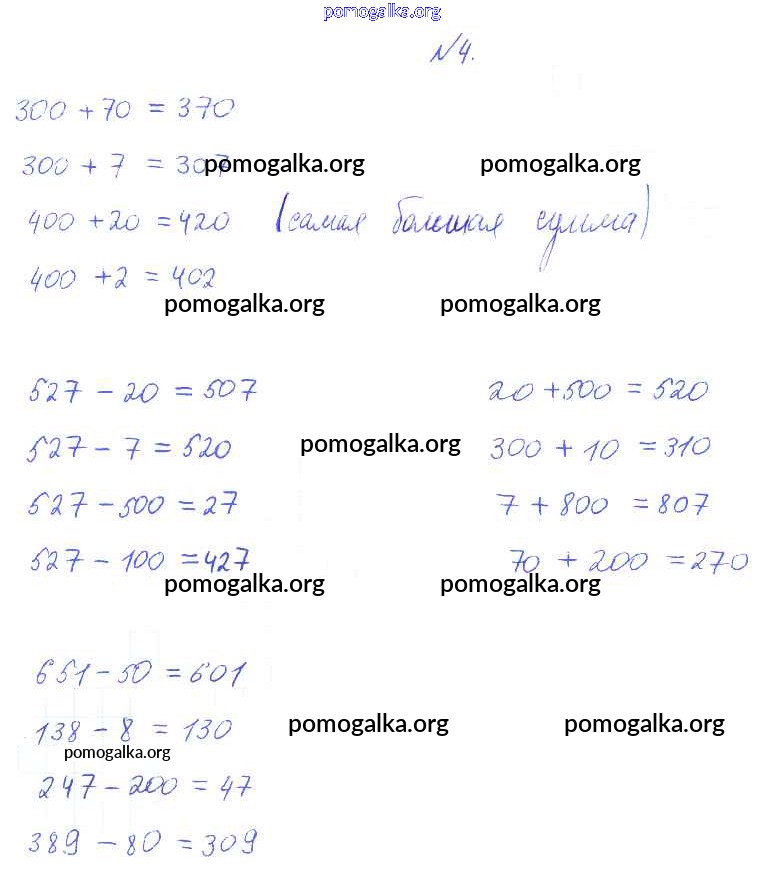 pomogalka.org
№4.
300 + 70 = 370
300 + 7 = 307 pomogalka.org pomogalka.org
400 + 20 = 420 (самая большая сумма)
400 + 2 = 402
pomogalka.org pomogalka.org
527 - 20 = 507 20 + 500 = 520
527 - 7 = 520 pomogalka.org 300 + 10 = 310
527 - 500 = 27 7 + 800 = 807
527 - 100 = 427 70 + 200 = 270
pomogalka.org pomogalka.org
651 - 50 = 601
138 - 8 = 130 pomogalka.org pomogalka.org
pomogalka.org
247 - 200 = 47
389 - 80 = 309